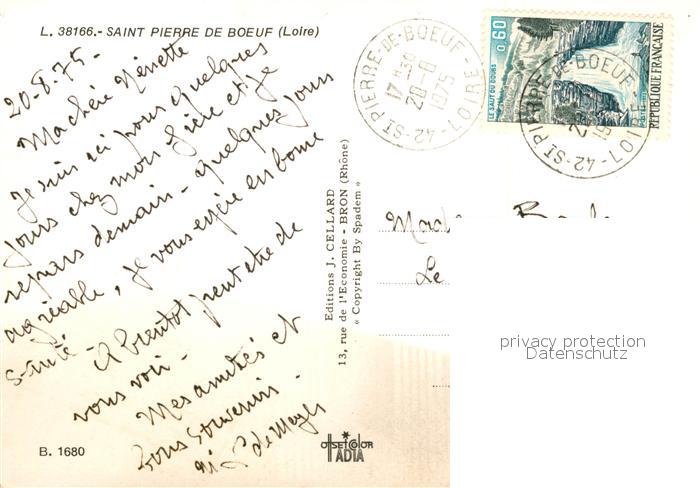 L. 38166.- SAINT PIERRE DE BOEUF (Loire)
20-8.75-
Ma chère Nénette
Je suis ici pour quelques
jours chez mon frère et je
repars demain - quelques jours
agréable, je vous espère en bonne
santé - A bientôt peut etre de
vous voir -
Mes amitiés et
Bons Souvenirs -
B. 1680
Editions J. CELLARD
13, rue de l'Economie - BRON (Rhône)
« Copyright By Spadem »
OFFSETCOLOR
ADIA
42-ST PIERRE-DE-BOEUF-LOIRE
17 H 30
20-8
1975
0,60
LE SAUT DU DOUBS
REPUBLIQUE FRANÇAISE
42-ST PIERRE-DE-BOEUF-LOIRE
Le
privacy protection
Datenschutz